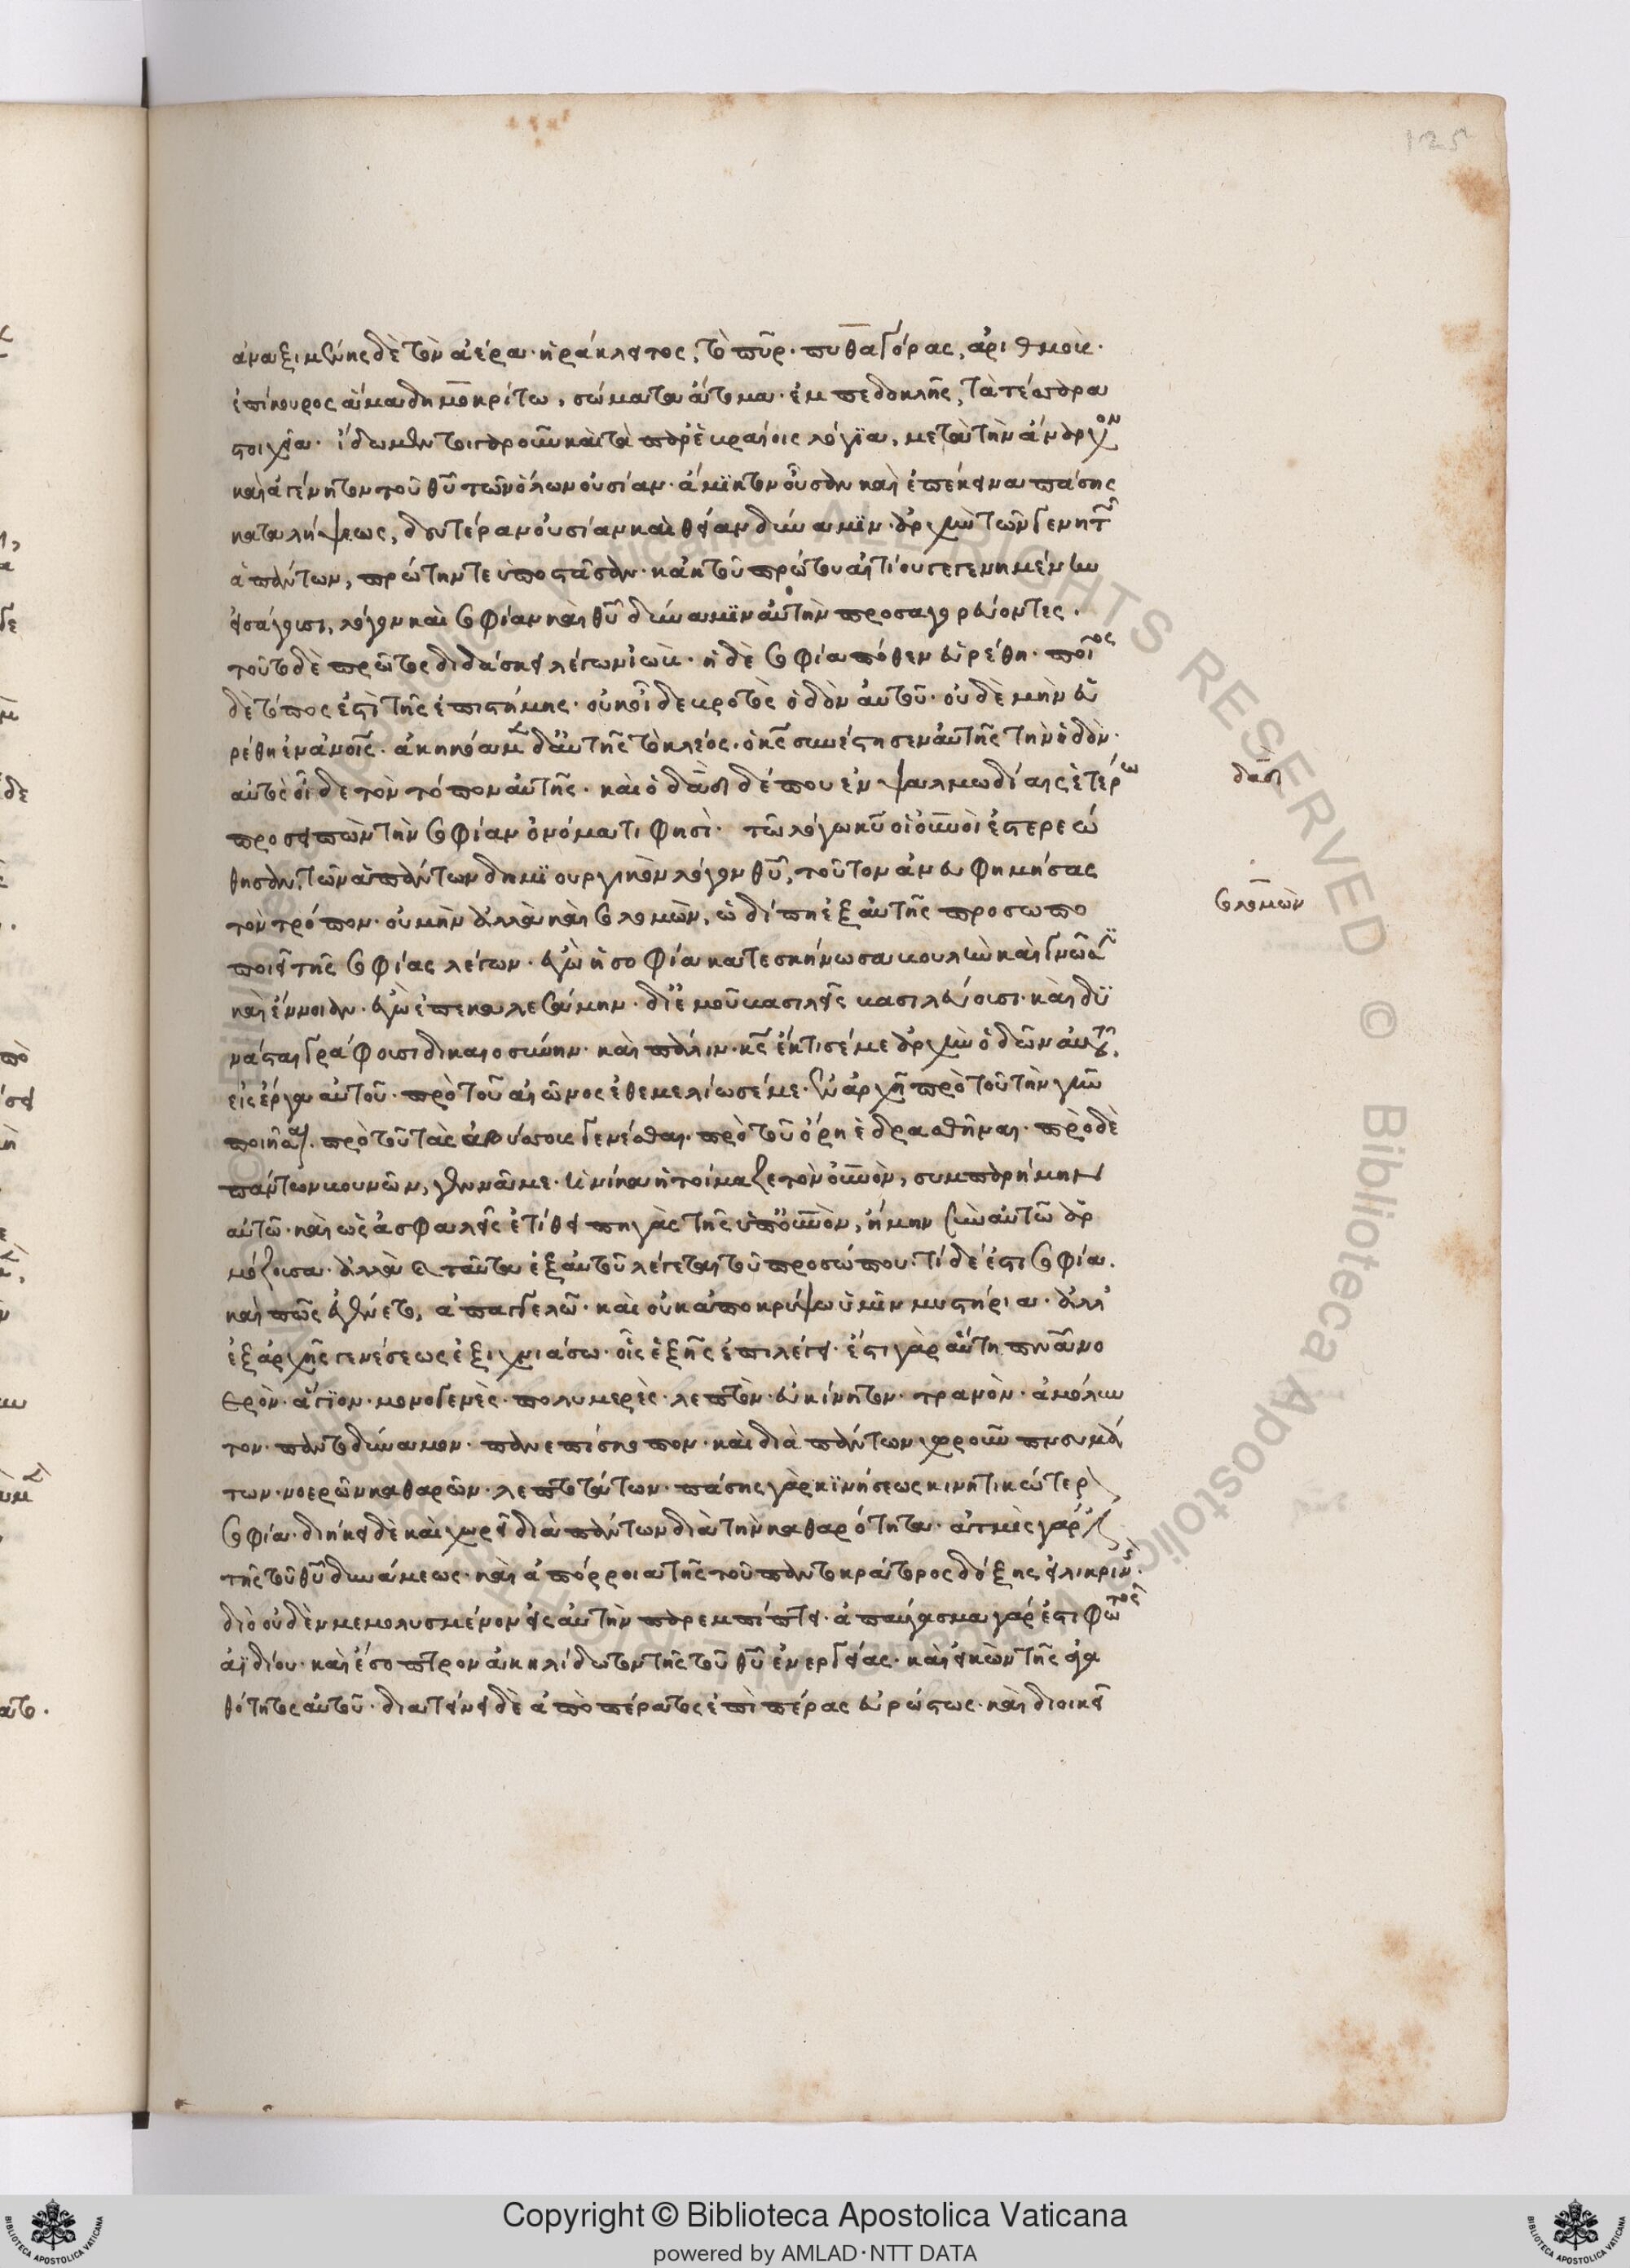 125
ἀναξιμένης δὲ τὸν ἀέρα· ἡράκλειτος, τὸ πῦρ· πυθαγόρας, ἀριθμούς·
ἐπίκουρος ἅμα δημοκρίτω, σώματα ἄτομα· ἐμπεδοκλῆς, τὰ τέσσαρα
στοιχεῖα· ἴδωμεν τοιγαροῦν καὶ τὰ παρ' ἑβραίοις λόγια, μετὰ τὴν ἄναρχον
καὶ ἀγένητον τοῦ θῦ τῶν ὅλων οὐσίαν· ἄμικτον οὖσαν καὶ ἐπέκεινα πάσης
καταλήψεως, δευτέραν οὐσίαν καὶ θείαν δύναμϊν· ἀρχὴν τῶν γενητῶν
ἁπάντων, πρώτην τε ὑποστᾶσαν· κἀκ τοῦ πρώτου αἰτίου γεγενημένην
εἰσάγουσι, λόγον καὶ σοφίαν καὶ θῦ δύναμϊν αὐτὴν προσαγορεύοντες.
τοῦτο δὲ πρῶτος διδάσκει λέγων ἰώβ· ἡ δὲ σοφία πόθεν εὑρέθη· ποῖος
δὲ τόπος ἐστὶ τῆς ἐπιστήμης· οὐκ οἶδε βροτὸς ὁδὸν αὐτοῦ· οὐδὲ μὴν εὑ
ρέθη ἐν ἀνοῖς· ἀκηκόαμεν δ' αὐτῆς τὸ κλέος· ὁ κς συνέστησεν αὐτῆς τὴν ὁδόν·
αὐτὸς οἶδε τὸν τόπον αὐτῆς· καὶ ὁ δαδ δέ που ἐν ψαλμωδίαις ἑτέρω
προσειπὼν τὴν σοφίαν ὀνόματι φησὶ· τῶ λόγω κῦ οἱ οὐνοὶ ἐστερεώ
θησαν, τῶν ἁπάντων δημϊουργικὸν λόγον θῦ, τοῦτον ἀνευφημήσας
τὸν τρόπον· οὐ μὴν ἀλλὰ καὶ σολομὼν, ὧδί πη ἐξ αὐτῆς προσωπο
ποιεῖ τῆς σοφίας λέγων· ἐγὼ ἡ σοφία κατεσκήνωσα βουλὴν καὶ γνῶσϊν
καὶ ἔννοιαν· ἐγὼ ἐπεκαλεσάμην· δι' ἐμοῦ βασιλεῖς βασιλεύουσι· καὶ δυ
νάσται γράφουσι δικαιοσύνην· καὶ πάλιν· κς ἔκτισέ με ἀρχὴν ὁδῶν αὐτοῦ,
εἰς ἔργα αὐτοῦ· πρὸ τοῦ αἰῶνος ἐθεμελίωσέ με· ἐν ἀρχῆ πρὸ τοῦ τὴν γῆν
ποιῆσαι· πρὸ τοῦ τὰς ἀβύσσους γενέσθαι· πρὸ τοῦ ὄρη ἑδρασθῆναι· πρὸ δὲ
πάντων βουνῶν, γεννᾶ με· ἡνίκα ἡτοίμαζε τὸν οὐνὸν, συμπαρήμην
αὐτῶ· καὶ ὡς ἀσφαλεῖς ἐτίθει πηγὰς τῆς ὑπ' οὐνὸν, ἤμην σὺν αὐτῶ ἁρ
μόζουσα· ἀλλὰ καὶ ταῦτα ἐξ αὐτοῦ λέγεται τοῦ προσώπου· τί δέ ἐστι σοφία.
καὶ πῶς ἐγένετο, ἀπαγγελῶ· καὶ οὐκ ἀποκρύψω ὑμῖν μυστήρια· ἀλλ'
ἐξ ἀρχῆς γενέσεως ἐξιχνιάσω· οἷς ἑξῆς ἐπιλέγει· ἔστι γὰρ αὕτη πνᾶ νο
ερὸν· ἅγϊον· μονογενὲς· πολυμερὲς· λεπτὸν· εὐκίνητον· τρανὸν· ἀμόλυν
τον· παντοδύναμον· πανεπίσκοπον· καὶ διὰ πάντων χωροῦν πνευμά
των· νοερῶν καθαρῶν· λεπτοτάτων· πάσης γὰρ κϊνήσεως κινητικώτερον
σοφία· διήκει δὲ καὶ χωρεῖ διὰ πάντων διὰ τὴν καθαρότητα· ἀτμὶς γάρ ἐστι
τῆς τοῦ θῦ δυνάμεως· καὶ ἀπόρροια τῆς τοῦ παντοκράτορος δόξης εἰλικρινής·
διὸ οὐδὲν μεμολυσμένον εἰς αὐτὴν παρεμπίπτει· ἀπαύγασμα γάρ ἐστι φωτὸς
ἀϊδίου· καὶ ἔσοπτρον ἀκηλίδωτον τῆς τοῦ θῦ ἐνεργείας· καὶ εἰκὼν τῆς ἀγα
θότητος αὐτοῦ· διατείνει δὲ ἀπὸ πέρατος ἐπὶ πέρας εὐρώστως· καὶ διοικεῖ
δαδ
σολομὼν
Copyright © Biblioteca Apostolica Vaticana
powered by AMLAD·NTT DATA